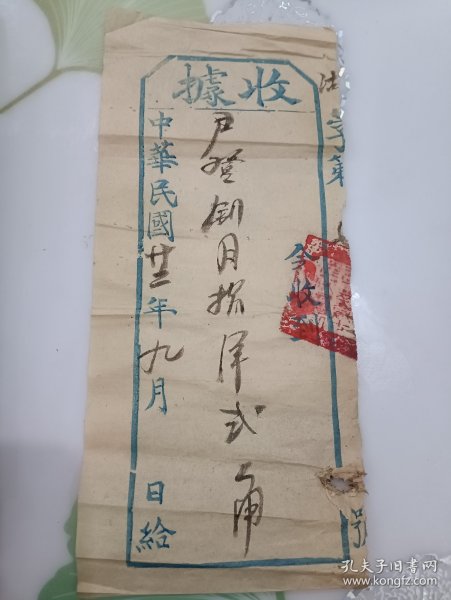 收據
字第
號
今收到
尹登釗月捐洋弍角
中華民國廿三年九月 日給
孔夫子旧书网
www.kongfz.com